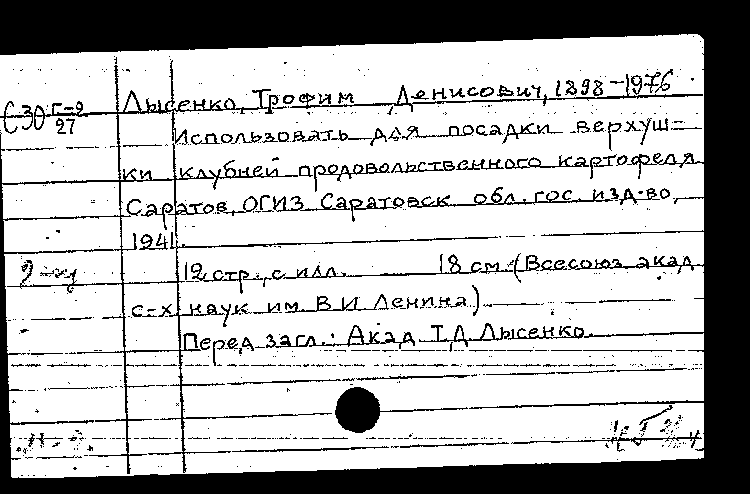 С30 Г-2
27
Лысенко, Трофим Денисович, 1898-1976
Использовать для посадки верхуш=
ки клубней продовольственного картофеля
Саратов, ОГИЗ Саратовск обл. гос. изд-во,
1941.
12 стр., с илл. 18 см (Всесоюз акад
с-х наук им. В.И Ленина)
Перед загл.: Акад. Т.Д. Лысенко.